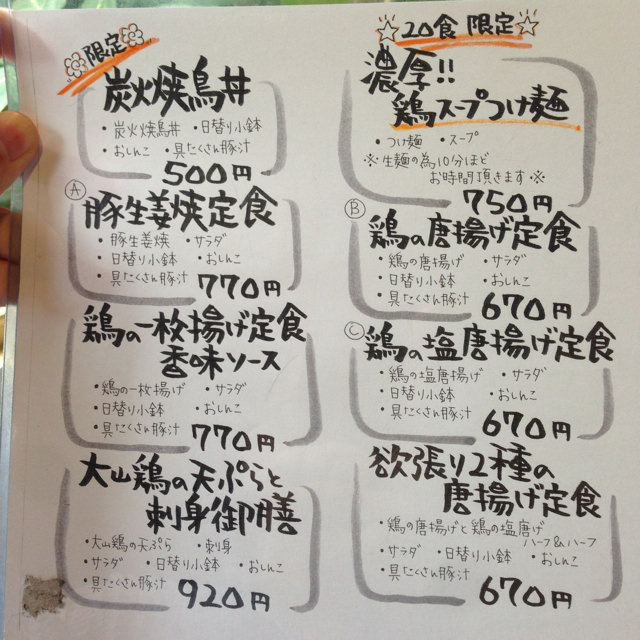 限定
炭火焼鳥丼
・炭火焼鳥丼 ・日替り小鉢
・おしんこ ・具たくさん豚汁
500円
Ⓐ
豚生姜焼定食
・豚生姜焼 ・サラダ
・日替り小鉢 ・おしんこ
・具たくさん豚汁 770円
鶏の一枚揚げ定食
香味ソース
・鶏の一枚揚げ ・サラダ
・日替り小鉢 ・おしんこ
・具たくさん豚汁 770円
大山鶏の天ぷらと
刺身御膳
・大山鶏の天ぷら ・刺身
・サラダ ・日替り小鉢 ・おしんこ
・具たくさん豚汁 920円
☆20食限定☆
濃厚!!
鶏スープつけ麺
・つけ麺 ・スープ
※生麺の為10分ほど
お時間頂きます※
750円
Ⓑ
鶏の唐揚げ定食
・鶏の唐揚げ ・サラダ
・日替り小鉢 ・おしんこ
・具たくさん豚汁 670円
Ⓒ
鶏の塩唐揚げ定食
・鶏の塩唐揚げ ・サラダ
・日替り小鉢 ・おしんこ
・具たくさん豚汁 670円
欲張り2種の
唐揚げ定食
・鶏の唐揚げと鶏の塩唐揚げ
ハーフ&ハーフ
・サラダ ・日替り小鉢 ・おしんこ
・具たくさん豚汁 670円